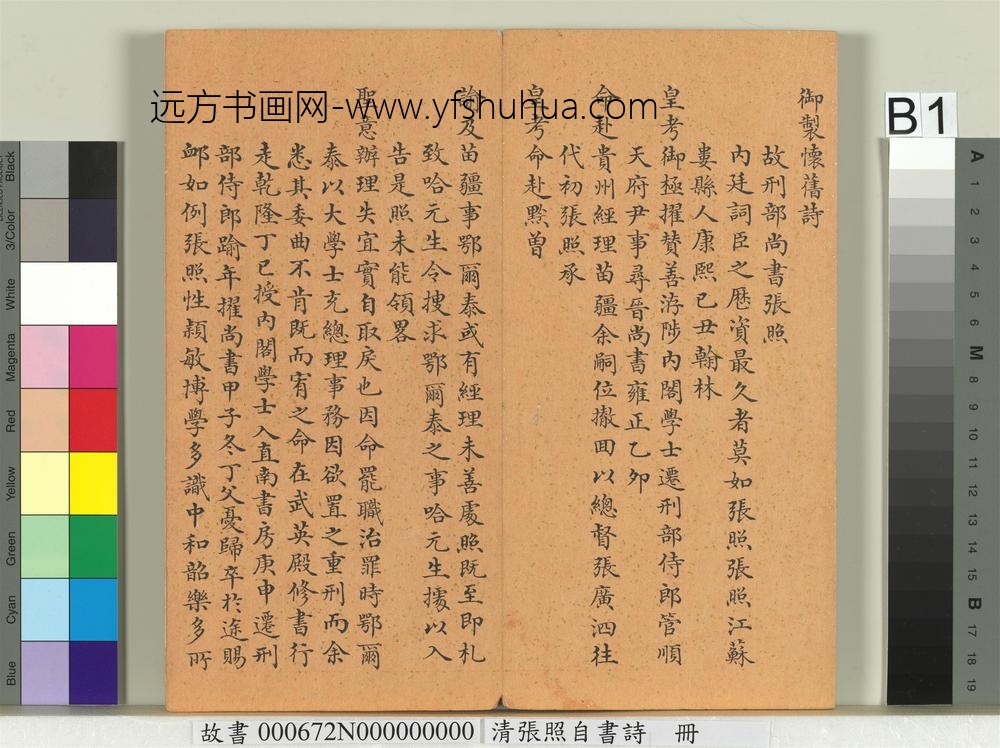 御製懷舊詩
故刑部尚書張照
內廷詞臣之歷資最久者莫如張照張照江蘇
婁縣人康熙己丑翰林
皇考御極擢贊善洊陟內閣學士遷刑部侍郎管順
天府尹事尋晉尚書雍正乙卯
命赴貴州經理苗疆余嗣位撤回以總督張廣泗往
代初張照承
皇考命赴黔曾
諭及苗疆事鄂爾泰或有經理未善處照既至即札
致哈元生令搜求鄂爾泰之事哈元生據以入
告是照未能領畧
聖意辦理失宜實自取戾也因命罷職治罪時鄂爾
泰以大學士充總理事務因欲置之重刑而余
悉其委曲不肯既而宥之命在武英殿修書行
走乾隆丁巳授內閣學士入直南書房庚申遷刑
部侍郎踰年擢尚書甲子冬丁父憂歸卒於途賜
卹如例張照性穎敏博學多識中和韶樂多所
远方书画网-www.yfshuhua.com
B1
Black
3/Color
White
Magenta
Red
Yellow
Green
Cyan
Blue
A
1
2
3
4
5
6
M
8
9
10
11
12
13
14
15
B
17
18
19
故書 000672N000000000 清張照自書詩 冊